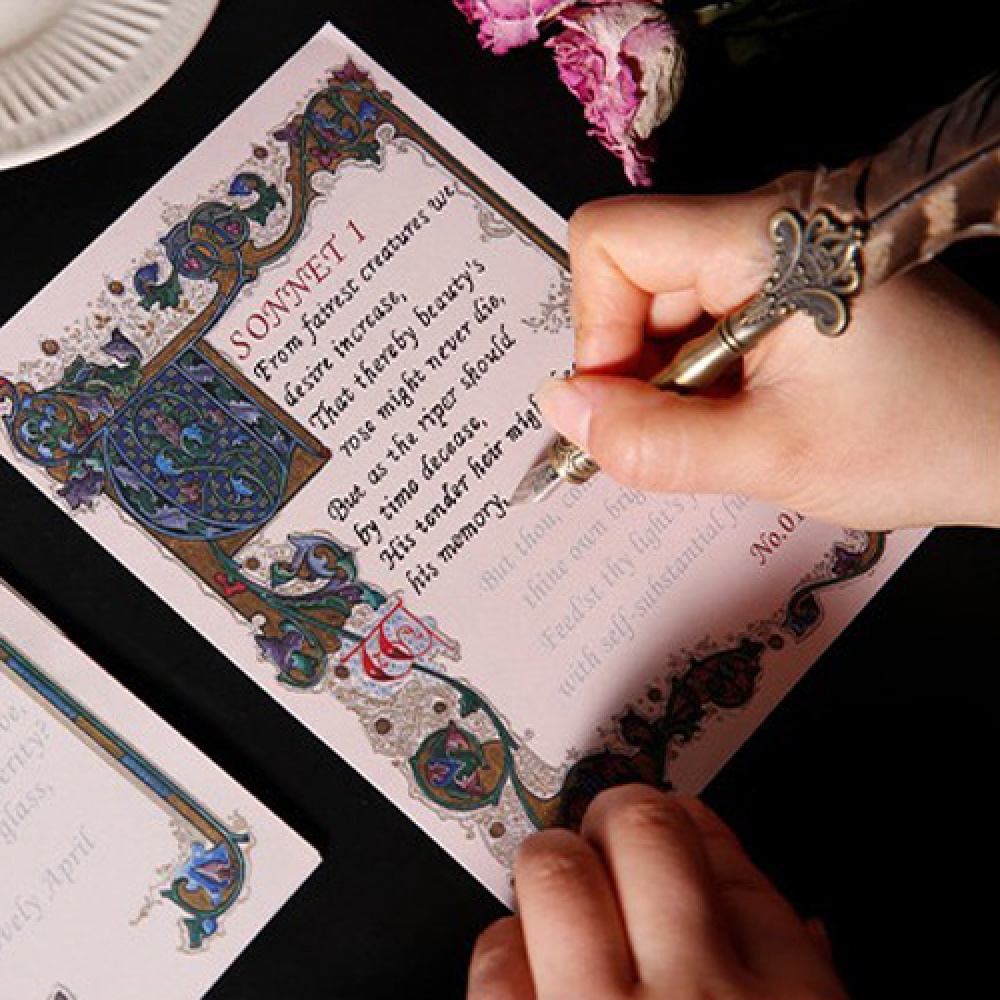 SONNET 1
From fairest creatures we
desire increase,
That thereby beauty's
rose might never die,
But as the riper should
by time decease,
His tender heir migh
his memory.
But thou, co
thine own brig
Feed'st thy light's
with self-substantial fu
No.01
ve,
ernity?
glass,
vely April